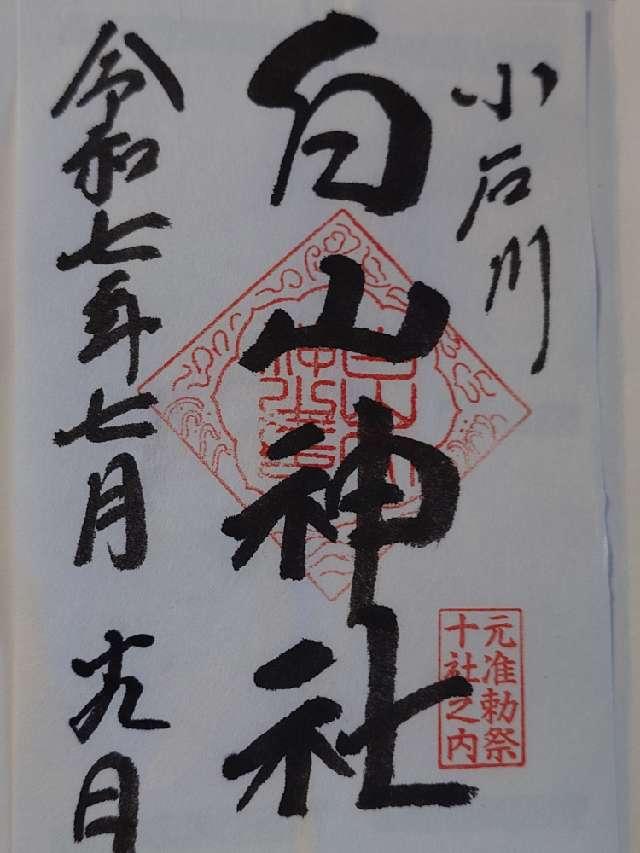 小石川
白山神社
元准勅祭
十社之内
令和七年七月十九日